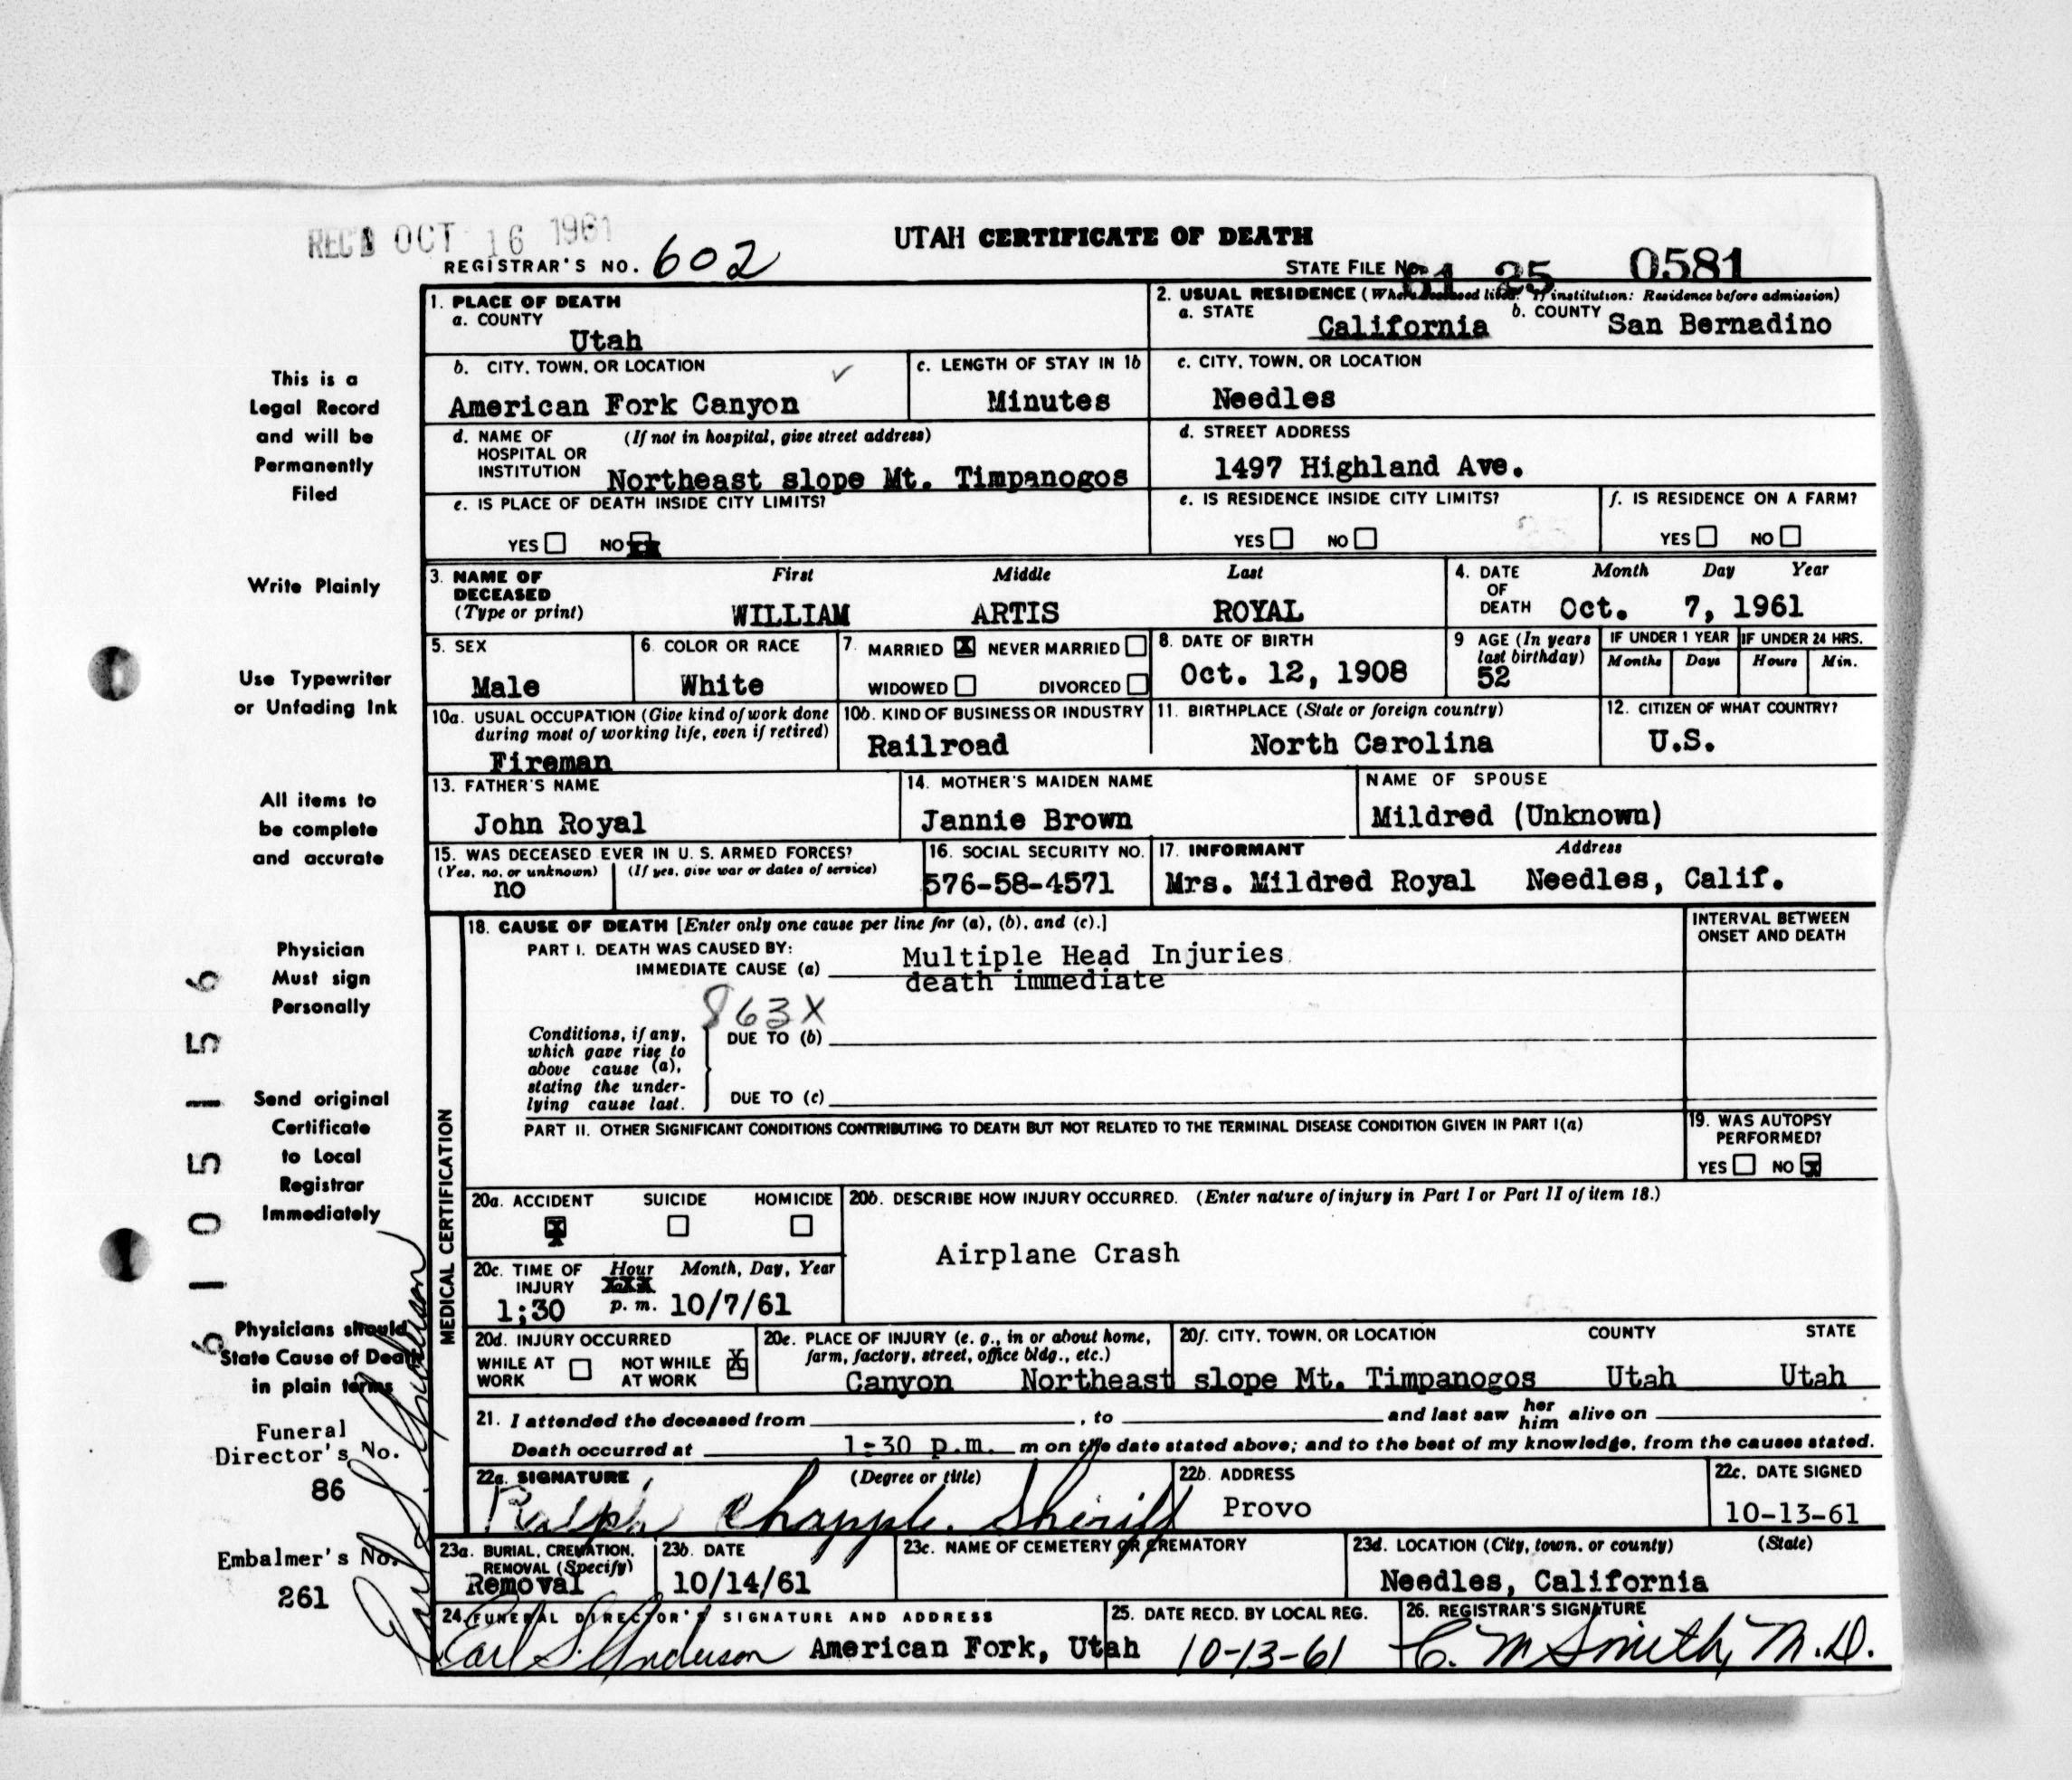 REC'D OCT 16 1961
UTAH CERTIFICATE OF DEATH
REGISTRAR'S NO. 602
STATE FILE No. 61 25 0581
1. PLACE OF DEATH
a. COUNTY
Utah
2. USUAL RESIDENCE (Where deceased lived. If institution: Residence before admission)
a. STATE California b. COUNTY San Bernadino
b. CITY, TOWN, OR LOCATION
American Fork Canyon
c. LENGTH OF STAY IN 1b
Minutes
c. CITY, TOWN, OR LOCATION
Needles
d. NAME OF HOSPITAL OR INSTITUTION (If not in hospital, give street address)
Northeast slope Mt. Timpanogos
d. STREET ADDRESS
1497 Highland Ave.
e. IS PLACE OF DEATH INSIDE CITY LIMITS?
YES NO XX
e. IS RESIDENCE INSIDE CITY LIMITS?
YES NO
f. IS RESIDENCE ON A FARM?
YES NO
3. NAME OF DECEASED (Type or print)
First Middle Last
WILLIAM ARTIS ROYAL
4. DATE OF DEATH Month Day Year
Oct. 7, 1961
5. SEX
Male
6. COLOR OR RACE
White
7. MARRIED X NEVER MARRIED
WIDOWED DIVORCED
8. DATE OF BIRTH
Oct. 12, 1908
9 AGE (In years last birthday)
52
IF UNDER 1 YEAR IF UNDER 24 HRS.
Months Days Hours Min.
10a. USUAL OCCUPATION (Give kind of work done during most of working life, even if retired)
Fireman
10b. KIND OF BUSINESS OR INDUSTRY
Railroad
11. BIRTHPLACE (State or foreign country)
North Carolina
12. CITIZEN OF WHAT COUNTRY?
U.S.
13. FATHER'S NAME
John Royal
14. MOTHER'S MAIDEN NAME
Jannie Brown
NAME OF SPOUSE
Mildred (Unknown)
15. WAS DECEASED EVER IN U. S. ARMED FORCES?
(Yes, no, or unknown) (If yes, give war or dates of service)
no
16. SOCIAL SECURITY NO.
576-58-4571
17. INFORMANT Address
Mrs. Mildred Royal Needles, Calif.
MEDICAL CERTIFICATION
18. CAUSE OF DEATH [Enter only one cause per line for (a), (b), and (c).]
INTERVAL BETWEEN ONSET AND DEATH
PART I. DEATH WAS CAUSED BY:
IMMEDIATE CAUSE (a) Multiple Head Injuries
death immediate
863X
Conditions, if any, which gave rise to above cause (a), stating the underlying cause last.
DUE TO (b)
DUE TO (c)
PART II. OTHER SIGNIFICANT CONDITIONS CONTRIBUTING TO DEATH BUT NOT RELATED TO THE TERMINAL DISEASE CONDITION GIVEN IN PART I(a)
19. WAS AUTOPSY PERFORMED?
YES NO X
20a. ACCIDENT SUICIDE HOMICIDE
X
20b. DESCRIBE HOW INJURY OCCURRED. (Enter nature of injury in Part I or Part II of item 18.)
Airplane Crash
20c. TIME OF INJURY Hour Month, Day, Year
1;30 p. m. 10/7/61
20d. INJURY OCCURRED
WHILE AT WORK NOT WHILE AT WORK X
20e. PLACE OF INJURY (e. g., in or about home, farm, factory, street, office bldg., etc.)
20f. CITY, TOWN, OR LOCATION COUNTY STATE
Canyon Northeast slope Mt. Timpanogos Utah Utah
21. I attended the deceased from , to and last saw her him alive on
Death occurred at 1:30 p.m. m on the date stated above; and to the best of my knowledge, from the causes stated.
22a. SIGNATURE (Degree or title)
Ralph Chapple. Sheriff
22b. ADDRESS
Provo
22c. DATE SIGNED
10-13-61
23a. BURIAL, CREMATION, REMOVAL (Specify)
Removal
23b. DATE
10/14/61
23c. NAME OF CEMETERY OR CREMATORY
23d. LOCATION (City, town, or county) (State)
Needles, California
24. FUNERAL DIRECTOR'S SIGNATURE AND ADDRESS
Earl S. Anderson American Fork, Utah
25. DATE RECD. BY LOCAL REG.
10-13-61
26. REGISTRAR'S SIGNATURE
C. M Smith, M.D.
This is a
Legal Record
and will be
Permanently
Filed
Write Plainly
Use Typewriter
or Unfading Ink
All items to
be complete
and accurate
Physician
Must sign
Personally
Send original
Certificate
to Local
Registrar
Immediately
Physicians should
State Cause of Death
in plain terms
Funeral
Director's No.
86
Embalmer's No.
261
Earl S. Anderson
61051556